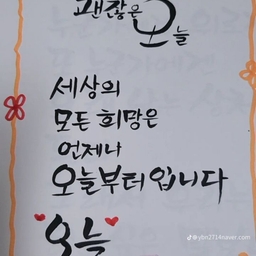 괜찮은 오늘
세상의
모든 희망은
언제나
오늘부터입니다
오늘
ybn2714naver.com